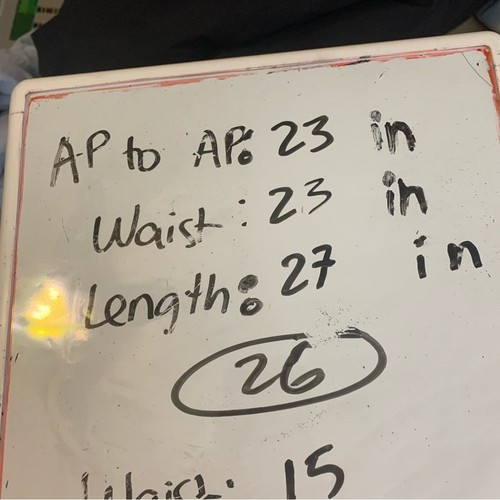 AP to AP: 23 in
Waist: 23 in
Length: 27 in
26
Waist: 15